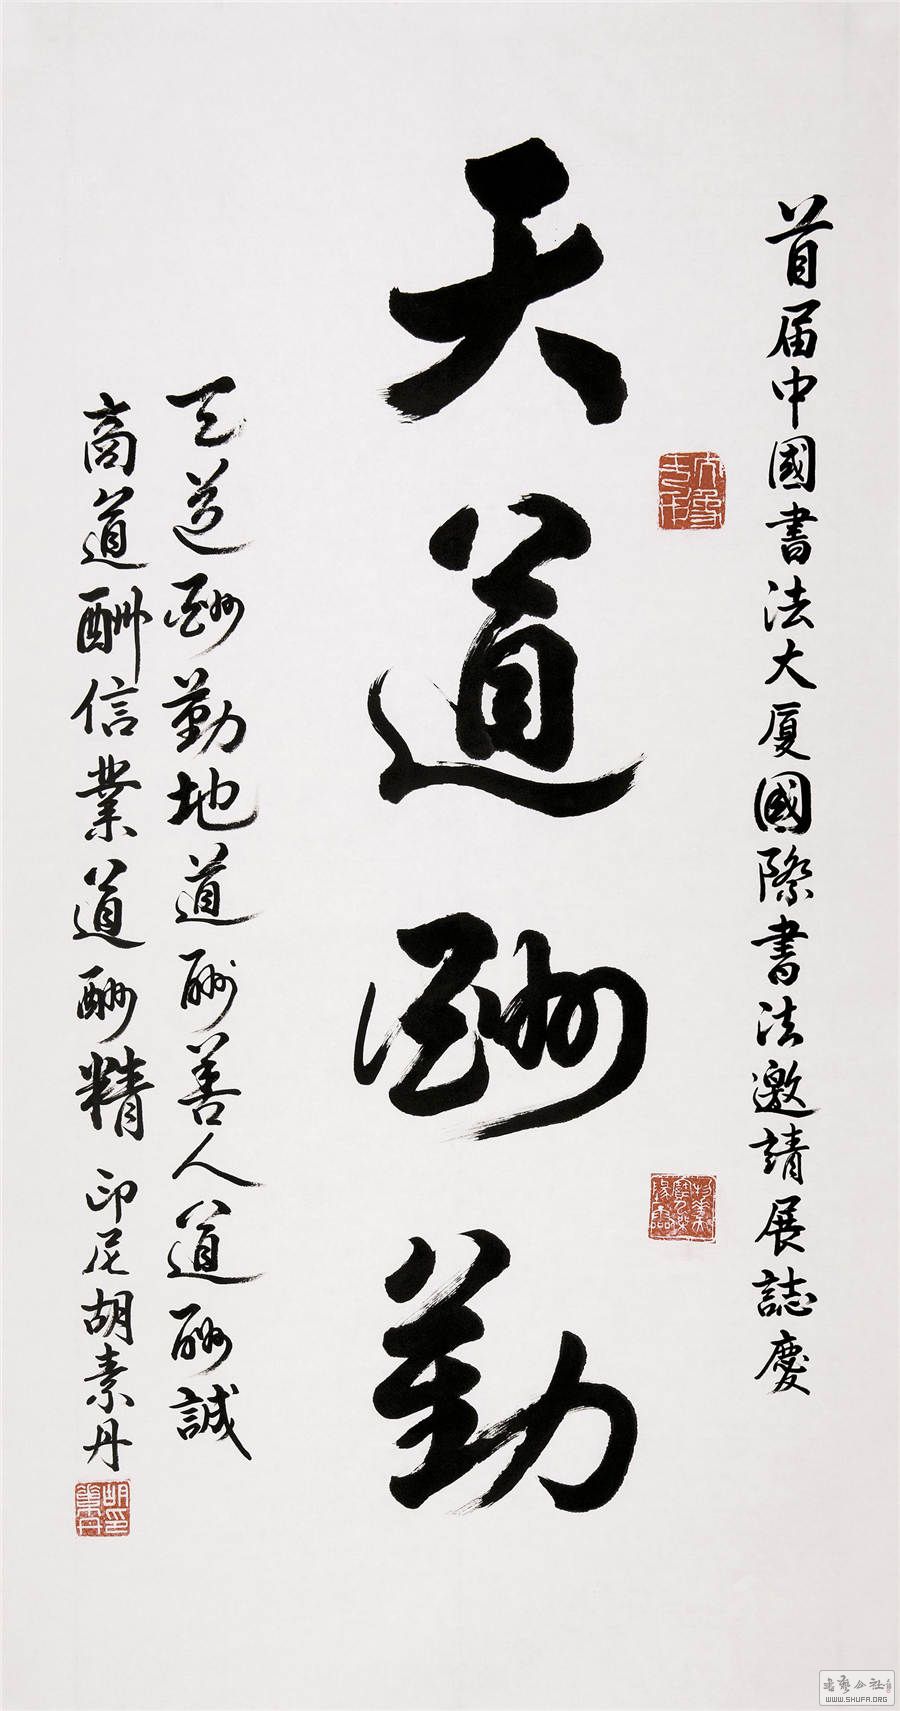 首届中國書法大厦國際書法邀請展誌慶
天道酬勤
天道酬勤地道酬善人道酬誠
商道酬信業道酬精 印尼胡素丹
胡素丹印
WWW.SHUFA.ORG